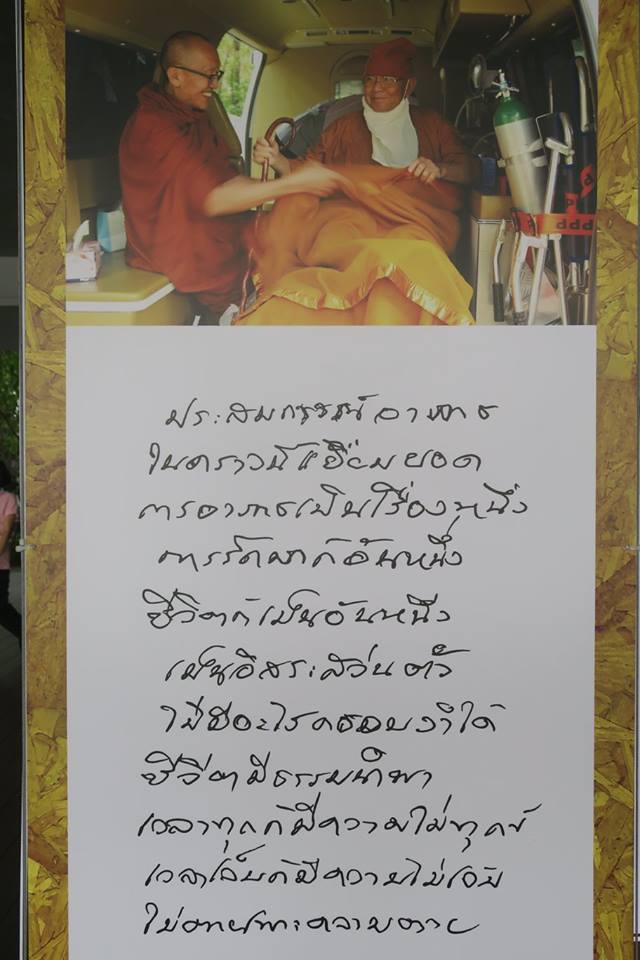 ประสบการณ์อาพาธ
ในคราวนี้เยี่ยมยอด
การอาพาธเป็นเรื่องหนึ่ง
การรักษาก็อันหนึ่ง
ชีวิตก็เป็นอันหนึ่ง
เป็นอิสระส่วนตัว
ไม่มีอะไรครอบงำได้
ชีวิตมีธรรมนำพา
เวลาทุกข์ก็มีความไม่ทุกข์
เวลาเจ็บก็มีความไม่เจ็บ
ไม่ตายเพราะความตาย